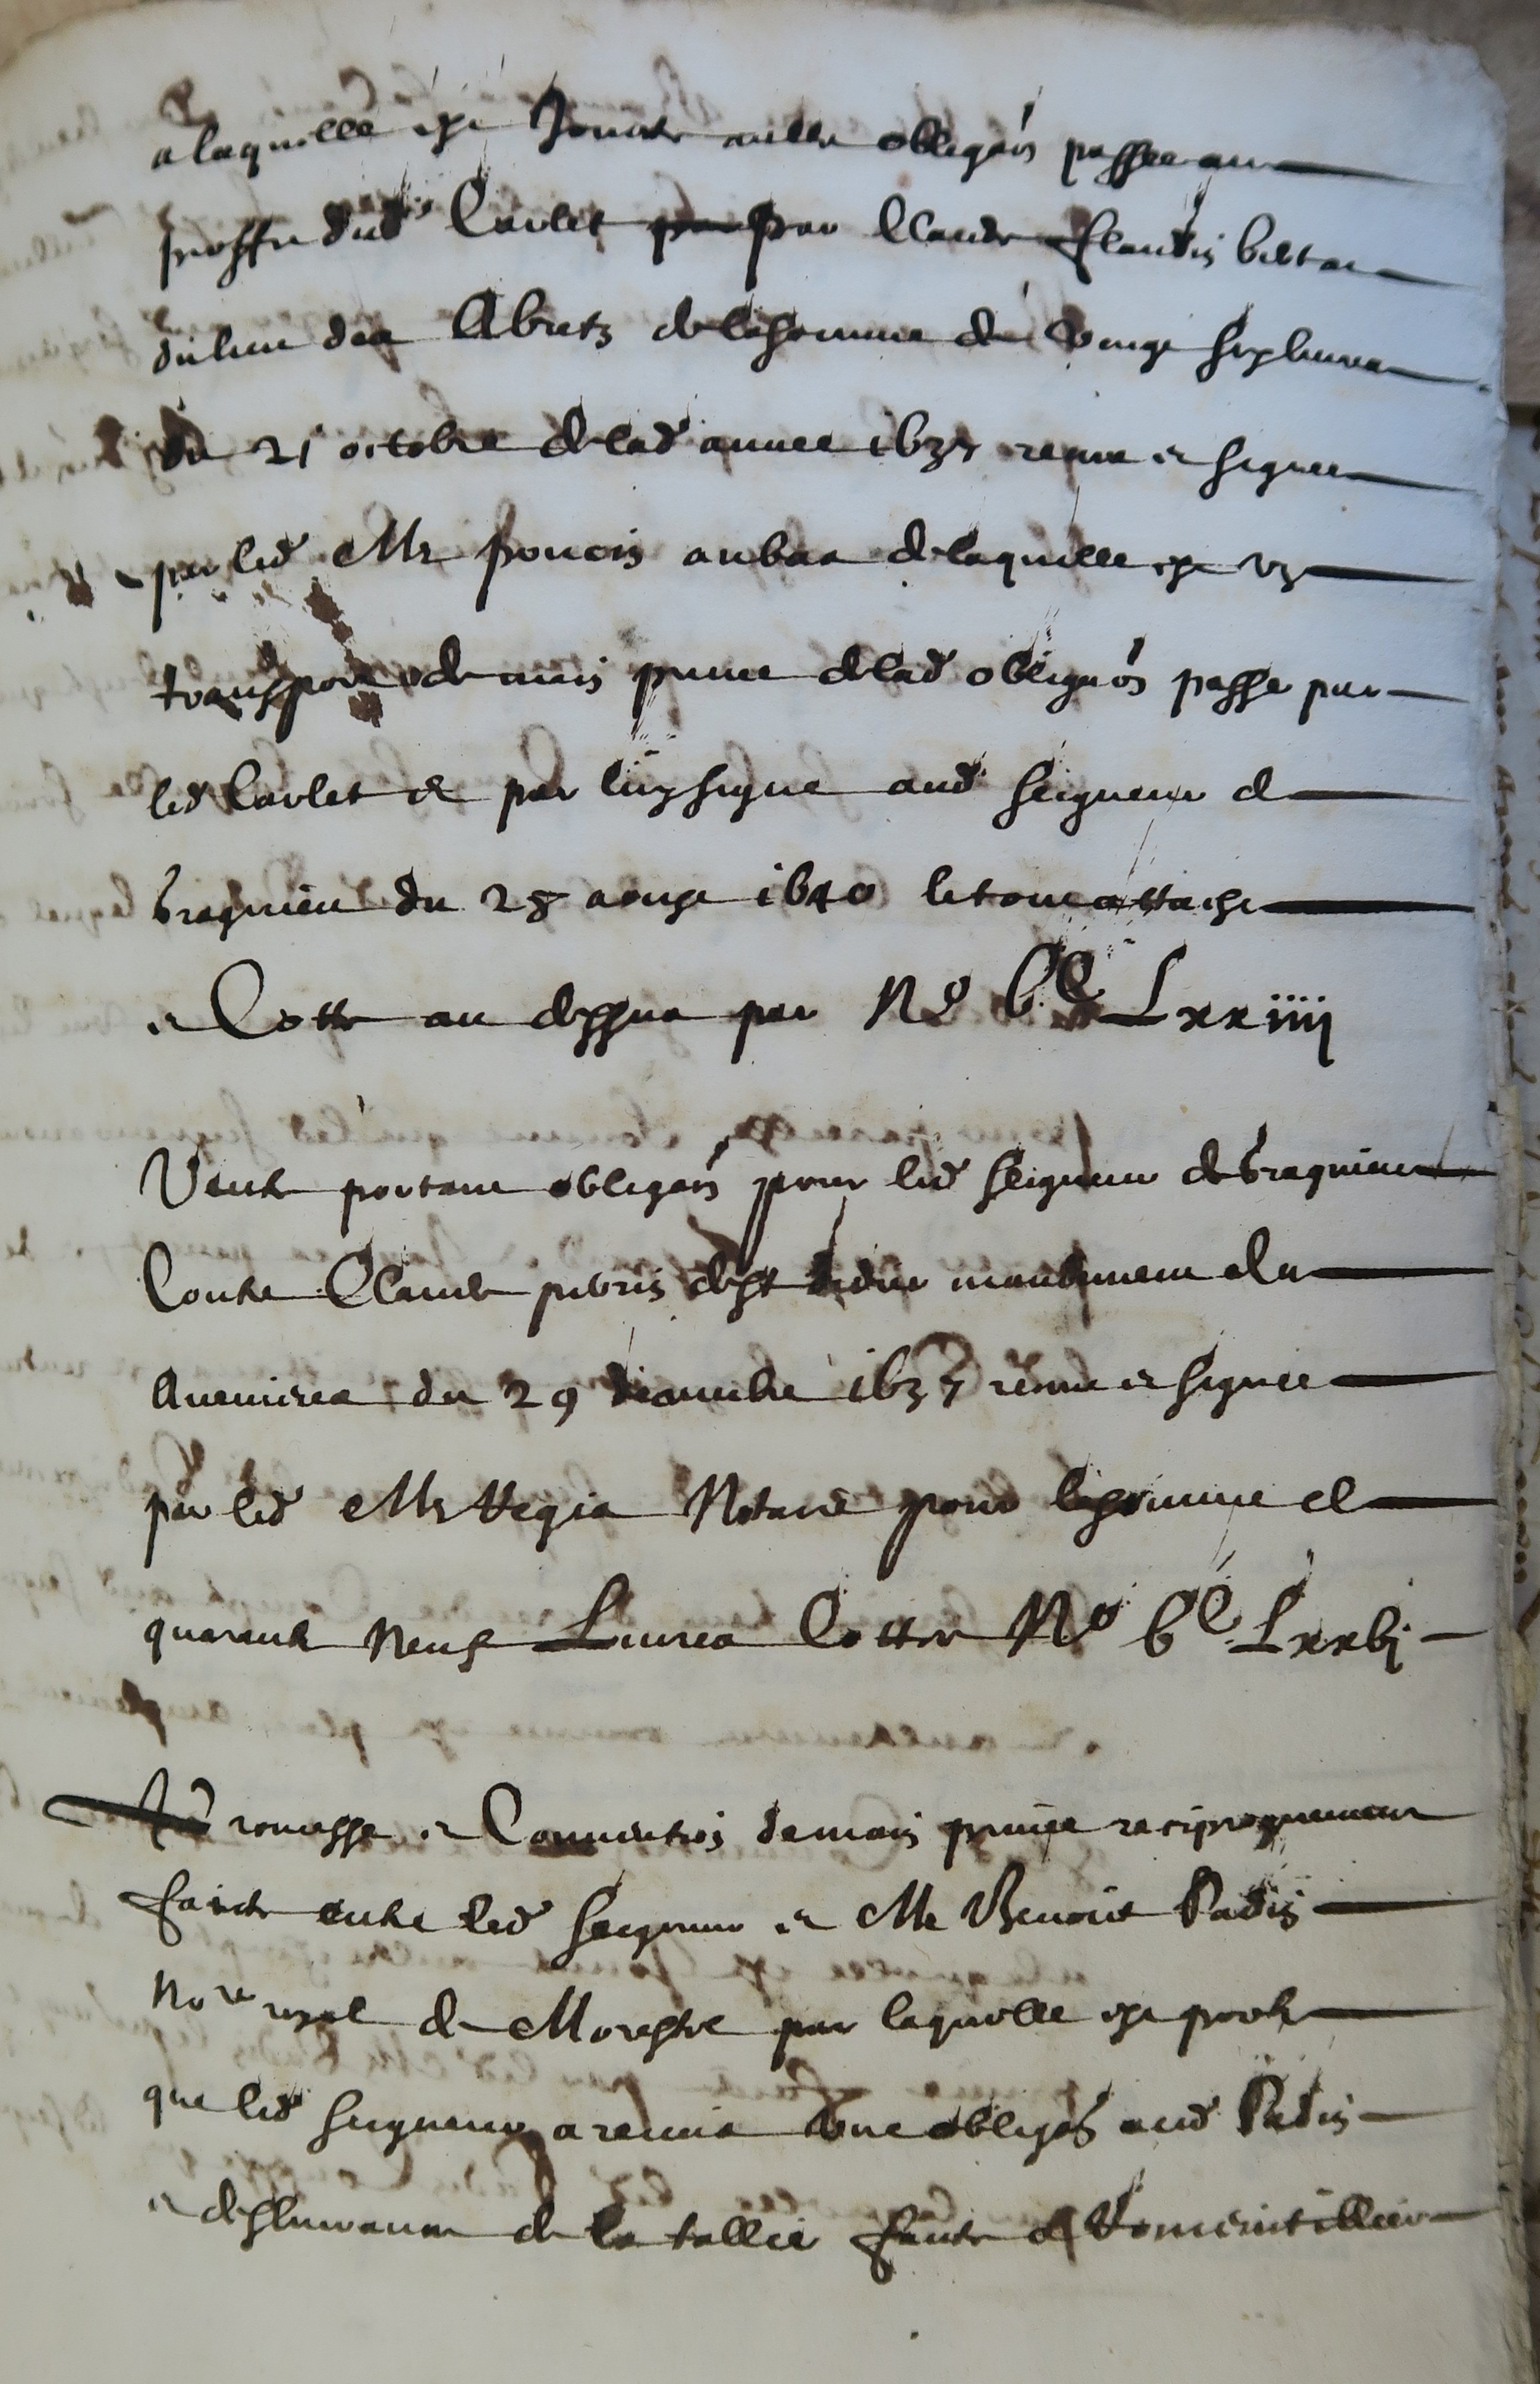 a laquelle est Jointe aultre obligaõn passee au
proffit dud Carlet par Claude flandin beltan
du lieu des Abretz de la somme de vingt six livres
du 21 octobre de lad annee 1637 receue et signee
par led Mr poncin au bas de laquelle est vng
transport de main privee de lad obligaõn passe par
led Carlet et par luy signe aud seigneur de
braquieu du 28 aoust 1640 le tout attache
et Cotte au dessus par No bC Lxxiiij
Vente portant obligaõn pour led seigneur de braquieu
Contre Claude pivrin dict mandement des
Avenieres du 29 decembre 1637 receue et signee
par led Mr Regis Notaire pour la somme de
quarante Neuf Livres Cottee No bC Lxxbj
romesse et Convention de main privee reciproquement
faicte entre led seigneur et Me Benoit Padin
nore royal de Morestel par laquelle est porte
que led seigneur a remis vne obligaõn aud Padin
et de la tallie faicte